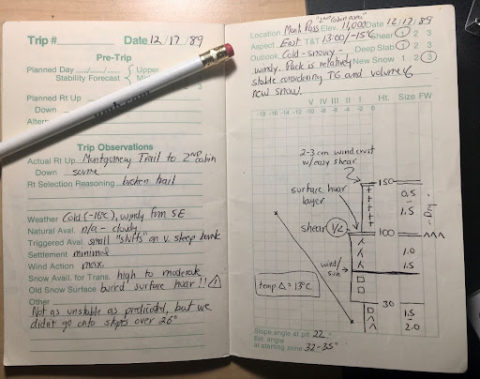 Trip # Date 12/17/89
Pre-Trip
Planned Day
Stability Forecast
Upper
Mid
Planned Rt Up
Down
Altern
Trip Observations
Actual Rt Up Montgomery Trail to 2ND cabin
Down same
Rt Selection Reasoning broken trail
Weather Cold (-15c), windy from SE
Natural Aval. n/a - cloudy
Triggered Aval. small "sluffs" on v. steep bank
Settlement minimal
Wind Action max.
Snow Avail. for Trans. high to moderate
Old Snow Surface buried surface hoar!!
Other
Not as unstable as predicated, but we
didn't go onto slopes over 26°
"2nd cabin area"
Location Mont. Pass Elev. 11,000 Date 12/17/89
Aspect East T&T 13:00/-15°C Shear 1 2 3
Outlook Cold - snowy - Deep Slab 1 2
windy. Pack is relatively New Snow 1 2 3
stable considering TG and volume of
new snow!
V IV III II I Ht. Size FW
2-3 cm wind crust
w/easy shear
150
surface hoar
layer
0.5
-
1.5
shear 1/2
100
1.0
1.5
wind/
sun
temp Δ = 13°C
30
1.5
-
2.0
Slope angle at pit 22°
Est. angle
at starting zone 32-35°